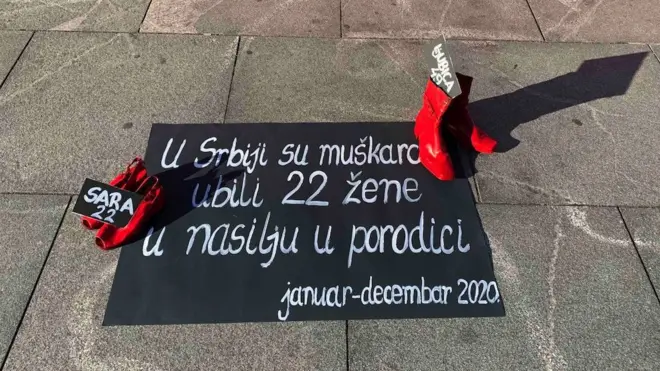 LJUBICA
49
U Srbiji su muškarc
ubili 22 žene
u nasilju u porodici
januar-decembar 2020.
SARA
22